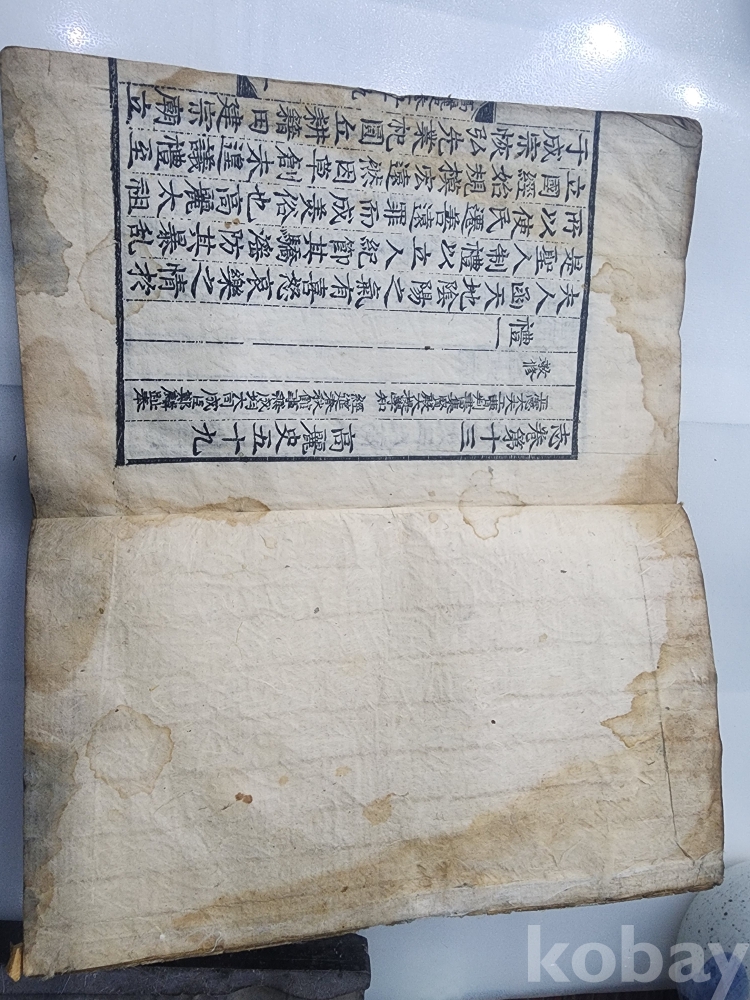 志卷第十三 高麗史五十九
正憲大夫工曹判書集賢殿大提學知
經筵春秋館事兼成均大司成臣鄭麟趾奉
敎修
禮一
夫人函天地陰陽之氣有喜怒哀樂之情於
是聖人制禮以立人紀節其驕淫防其暴亂
所以使民遷善遠罪而成美俗也高麗太祖
立國經始規模宏遠然因草創未遑議禮至
于成宗恢弘先業祀圜丘耕籍田建宗廟立
kobay